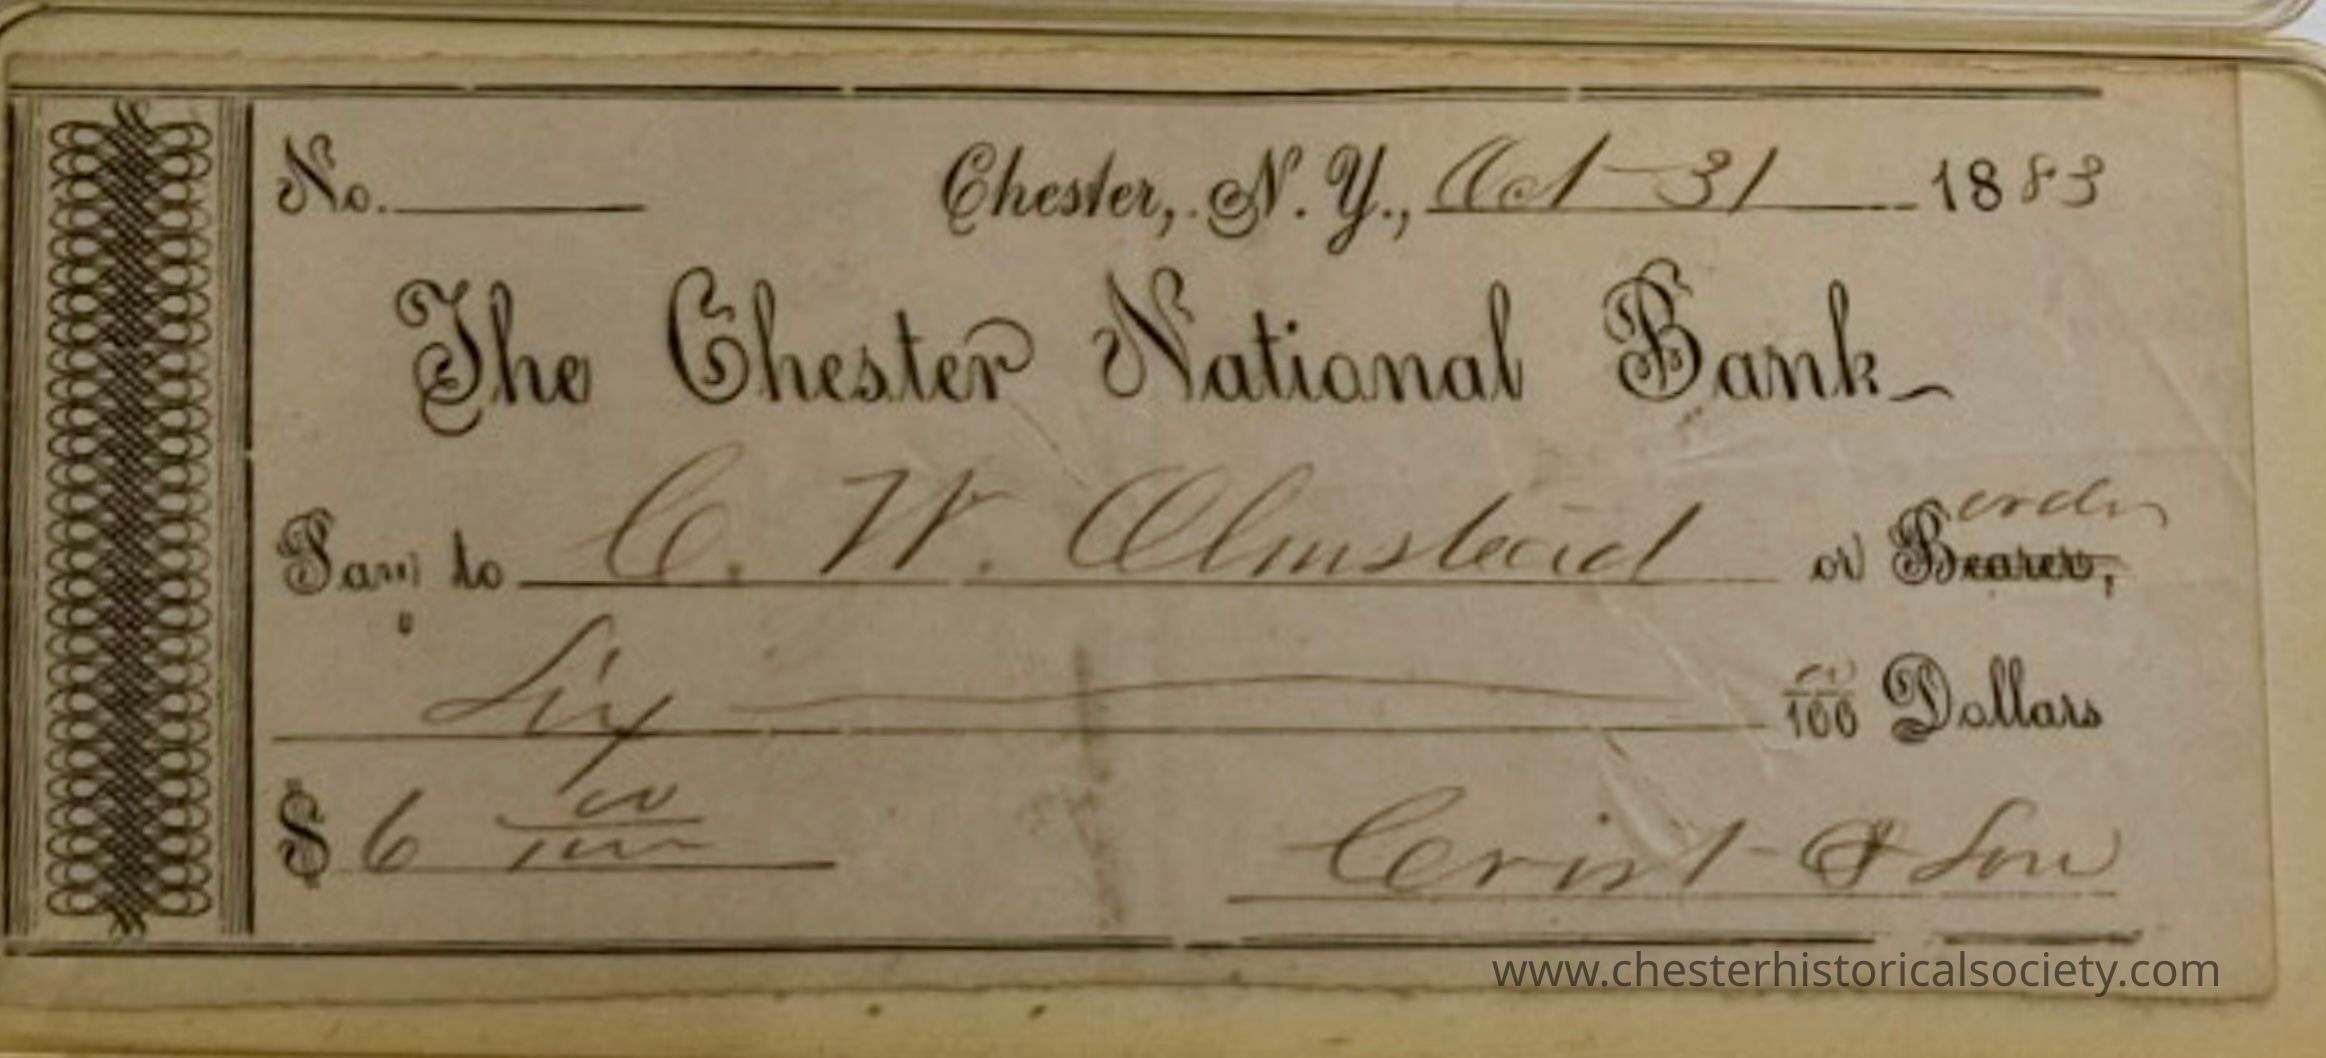 No. Chester, N. Y., Oct 31 1883
The Chester National Bank
Pay to C. W. Olmstead or Bearer, order
Six 00/100 Dollars
$ 6 00/100
Crist & Son
www.chesterhistoricalsociety.com